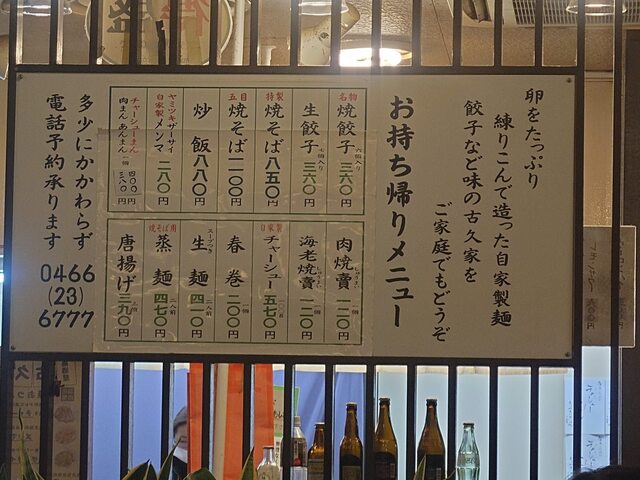 卵をたっぷり
練りこんで造った自家製麺
餃子など味の古久家を
ご家庭でもどうぞ
お持ち帰りメニュー
名物 焼餃子 六個入り 三六〇円
生餃子 三六〇円
特製 焼そば 八五〇円
五目 焼そば 一一〇〇円
炒飯 八八〇円
ヤミツキザーサイ
自家製メンマ 二八〇円
チャーシューまん 四〇〇
肉まん あんまん 一個 三八〇円
肉焼賣 一個 一二〇円
海老焼賣 一個 一二〇円
自家製 チャーシュー 五七〇円
春巻 一個 二〇〇円
スープつき 生麺 一人前 四一〇円
焼そば用 蒸麺 二人前 四七〇円
唐揚げ 三九〇円
多少にかかわらず
電話予約承ります
0466
(23)
6777